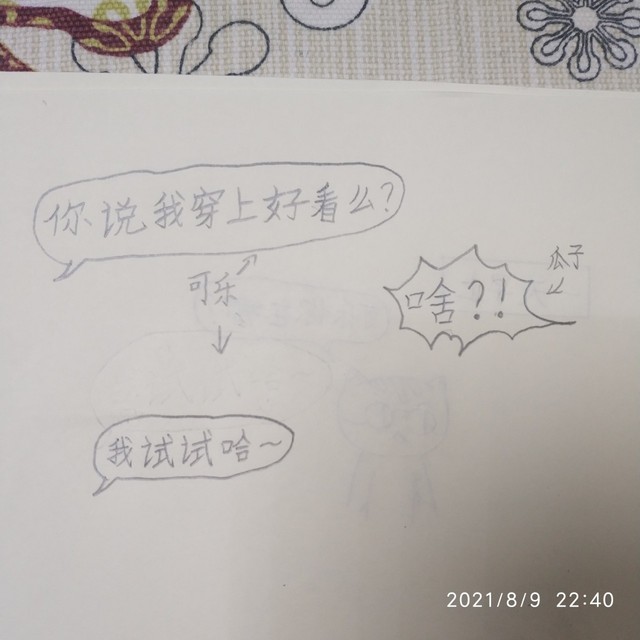 你说我穿上好看么?
可乐
瓜子
啥?!
我试试哈~
2021/8/9 22:40